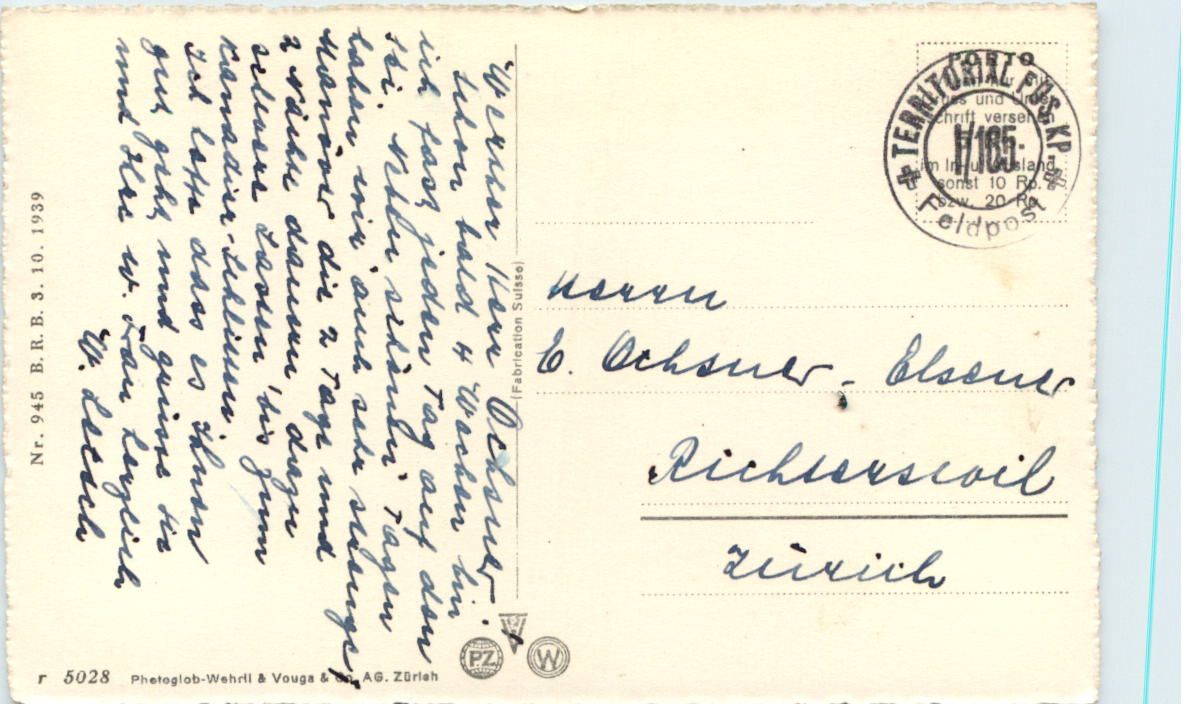 Werter Herr Ochsner.
Schon bald 4 Wochen bin
ich fast jeden Tag auf den
Ski. Neben schönen Tagen
haben wir auch sehr strenge,
Manöver die 2 Tage und
2 Nächte dauern dazu
schwere Lasten bis zum
Kanadier-Schlitten.
Ich hoffe dass es Ihnen
gut geht und grüsse Sie
und Ihre w. Frau herzlich
W.
Nr. 945 B. R. B. 3. 10. 1939
(Fabrication Suisse)
r 5028 Photoglob-Wehrli & Vouga & Co. AG. Zürich
PZ
W
PORTO
und Unter
schrift versehen
im In- u. Ausland
sonst 10 Rp.
bzw. 20 Rp.
TERRITORIAL FÜS. KP.
I/165
Feldpost
Herrn
E. Ochsner-Elsener
Richterswil
Zürich